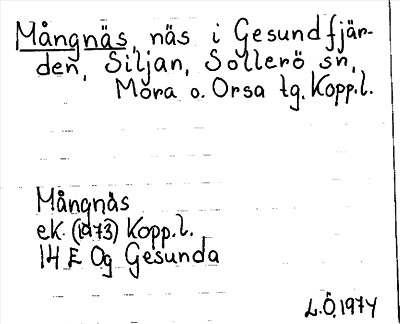 Mångnäs, näs i Gesundfjär-
den, Siljan, Sollerö sn,
Mora o. Orsa tg. Kopp.l.
Mångnäs
eK. (1973) Kopp.l.
14 E 0g Gesunda
L.Ö. 1974